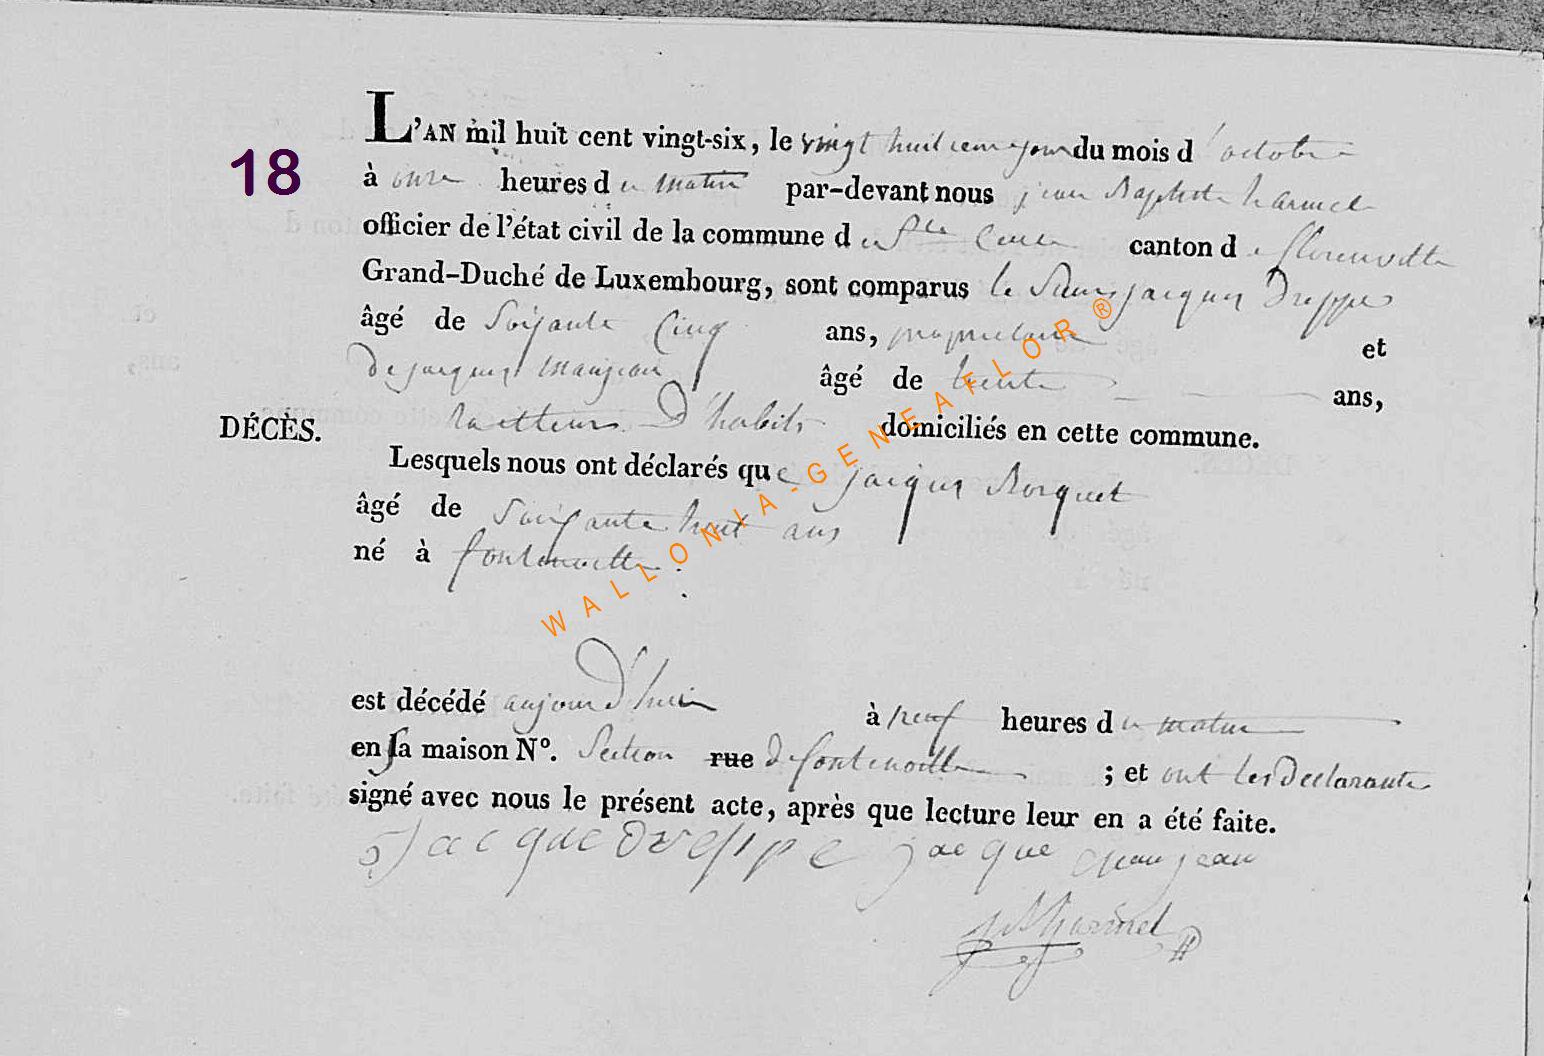 18
L'AN mil huit cent vingt-six, le vingt huitieme jour du mois d'octobre
à onze heures du matin par-devant nous jean Baptiste harmel
officier de l'état civil de la commune de Ste Cecile canton de florenville
Grand-Duché de Luxembourg, sont comparus le Sieurs jacques Dreppe
âgé de Soixante Cinq ans, proprietaire et
De jacques manjean âgé de trente ans,
DÉCÈS.
d'habits domiciliés en cette commune.
Lesquels nous ont déclarés que jacques Rorguet
âgé de Soixante huit ans
né à fontenoille.
est décédé aujourd'hui à neuf heures du matin
en sa maison N°. Section rue de fontenoille ; et ont les declarants
signé avec nous le présent acte, après que lecture leur en a été faite.
Jacque dreppe jacque manjean
jB harmel
WALLONIA-GENEAFLOR®